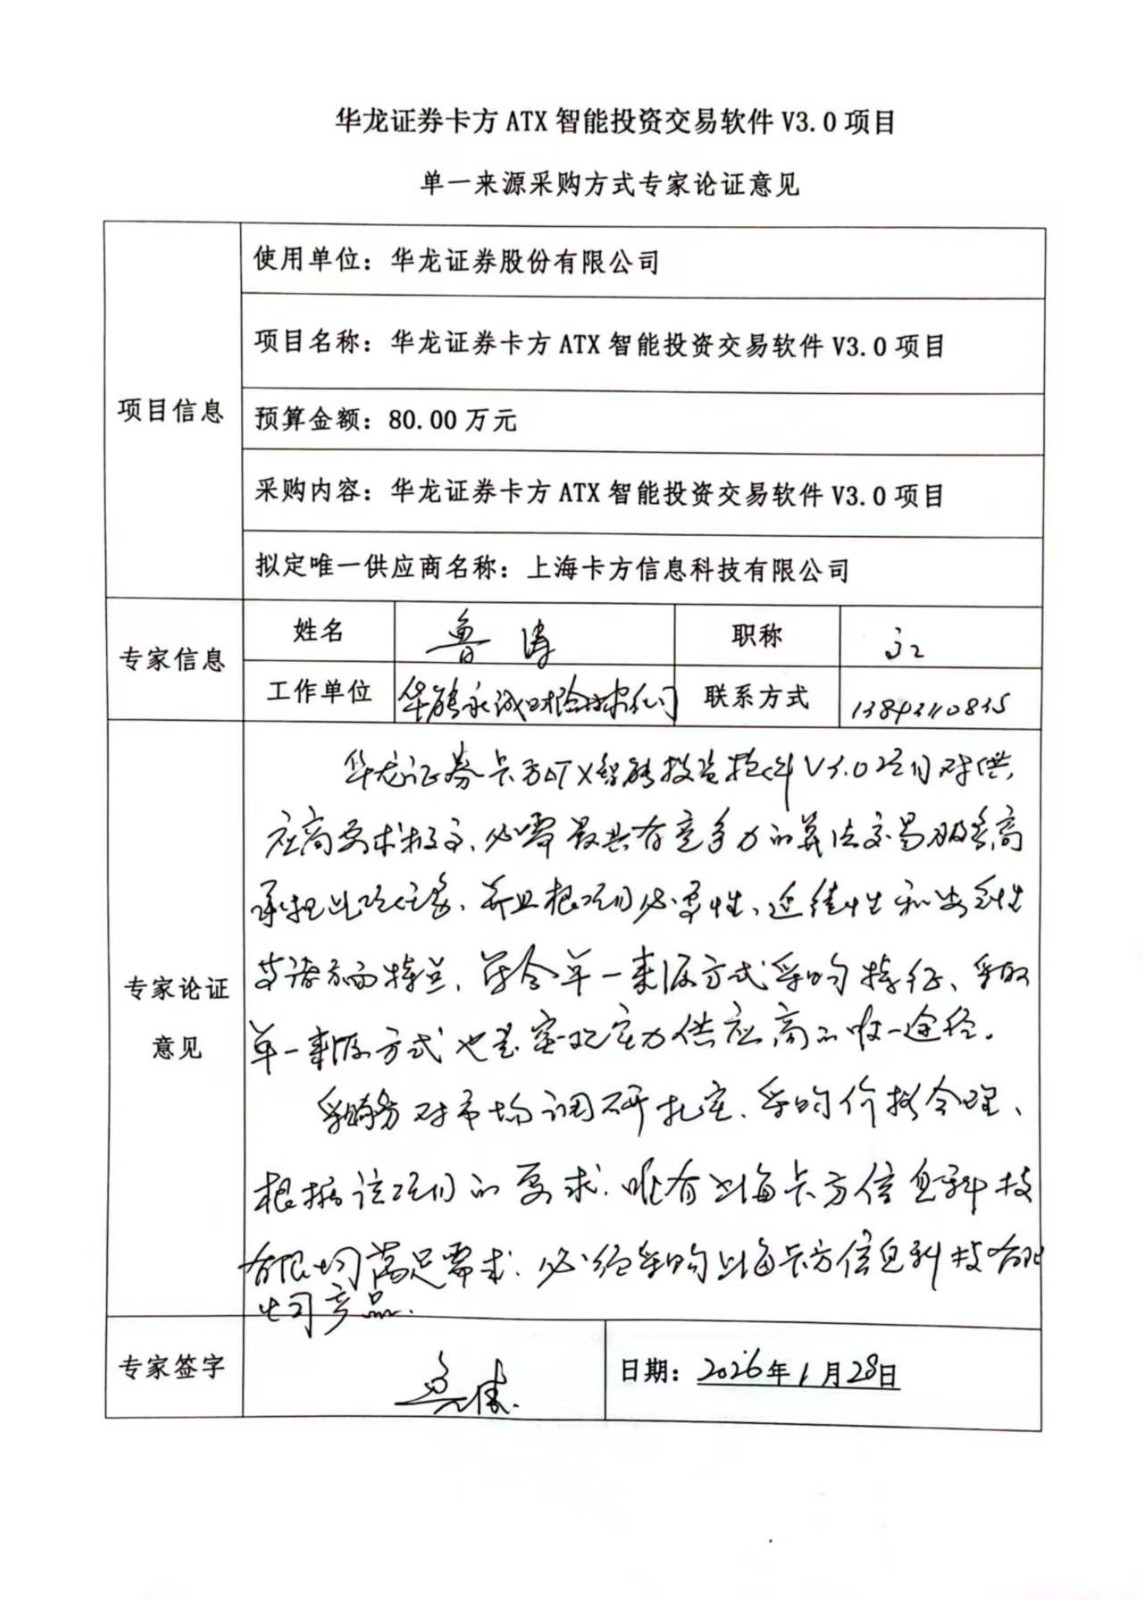 华龙证券卡方 ATX 智能投资交易软件 V3.0 项目
单一来源采购方式专家论证意见
项目信息
使用单位：华龙证券股份有限公司
项目名称：华龙证券卡方 ATX 智能投资交易软件 V3.0 项目
预算金额：80.00 万元
采购内容：华龙证券卡方 ATX 智能投资交易软件 V3.0 项目
拟定唯一供应商名称：上海卡方信息科技有限公司
专家信息
姓名 鲁涛 职称
工作单位 联系方式
专家论证
意见
华龙证券卡方ATX智能投资软件V3.0项目对供
应商要求较高，必需最具有竞争力的算法交易服务商
承担此项任务，并且根项目必要性、延续性和安全性
等诸方面特点，符合单一来源方式采购特征、采取
单一来源方式也是实现实力供应商的唯一途径。
采购务对市场调研扎实，采购价格合理、
根据该项目的要求，唯有上海卡方信息科技
有限公司满足需求，必须采购上海卡方信息科技有限
公司产品。
专家签字 鲁涛
日期：2026年1月28日